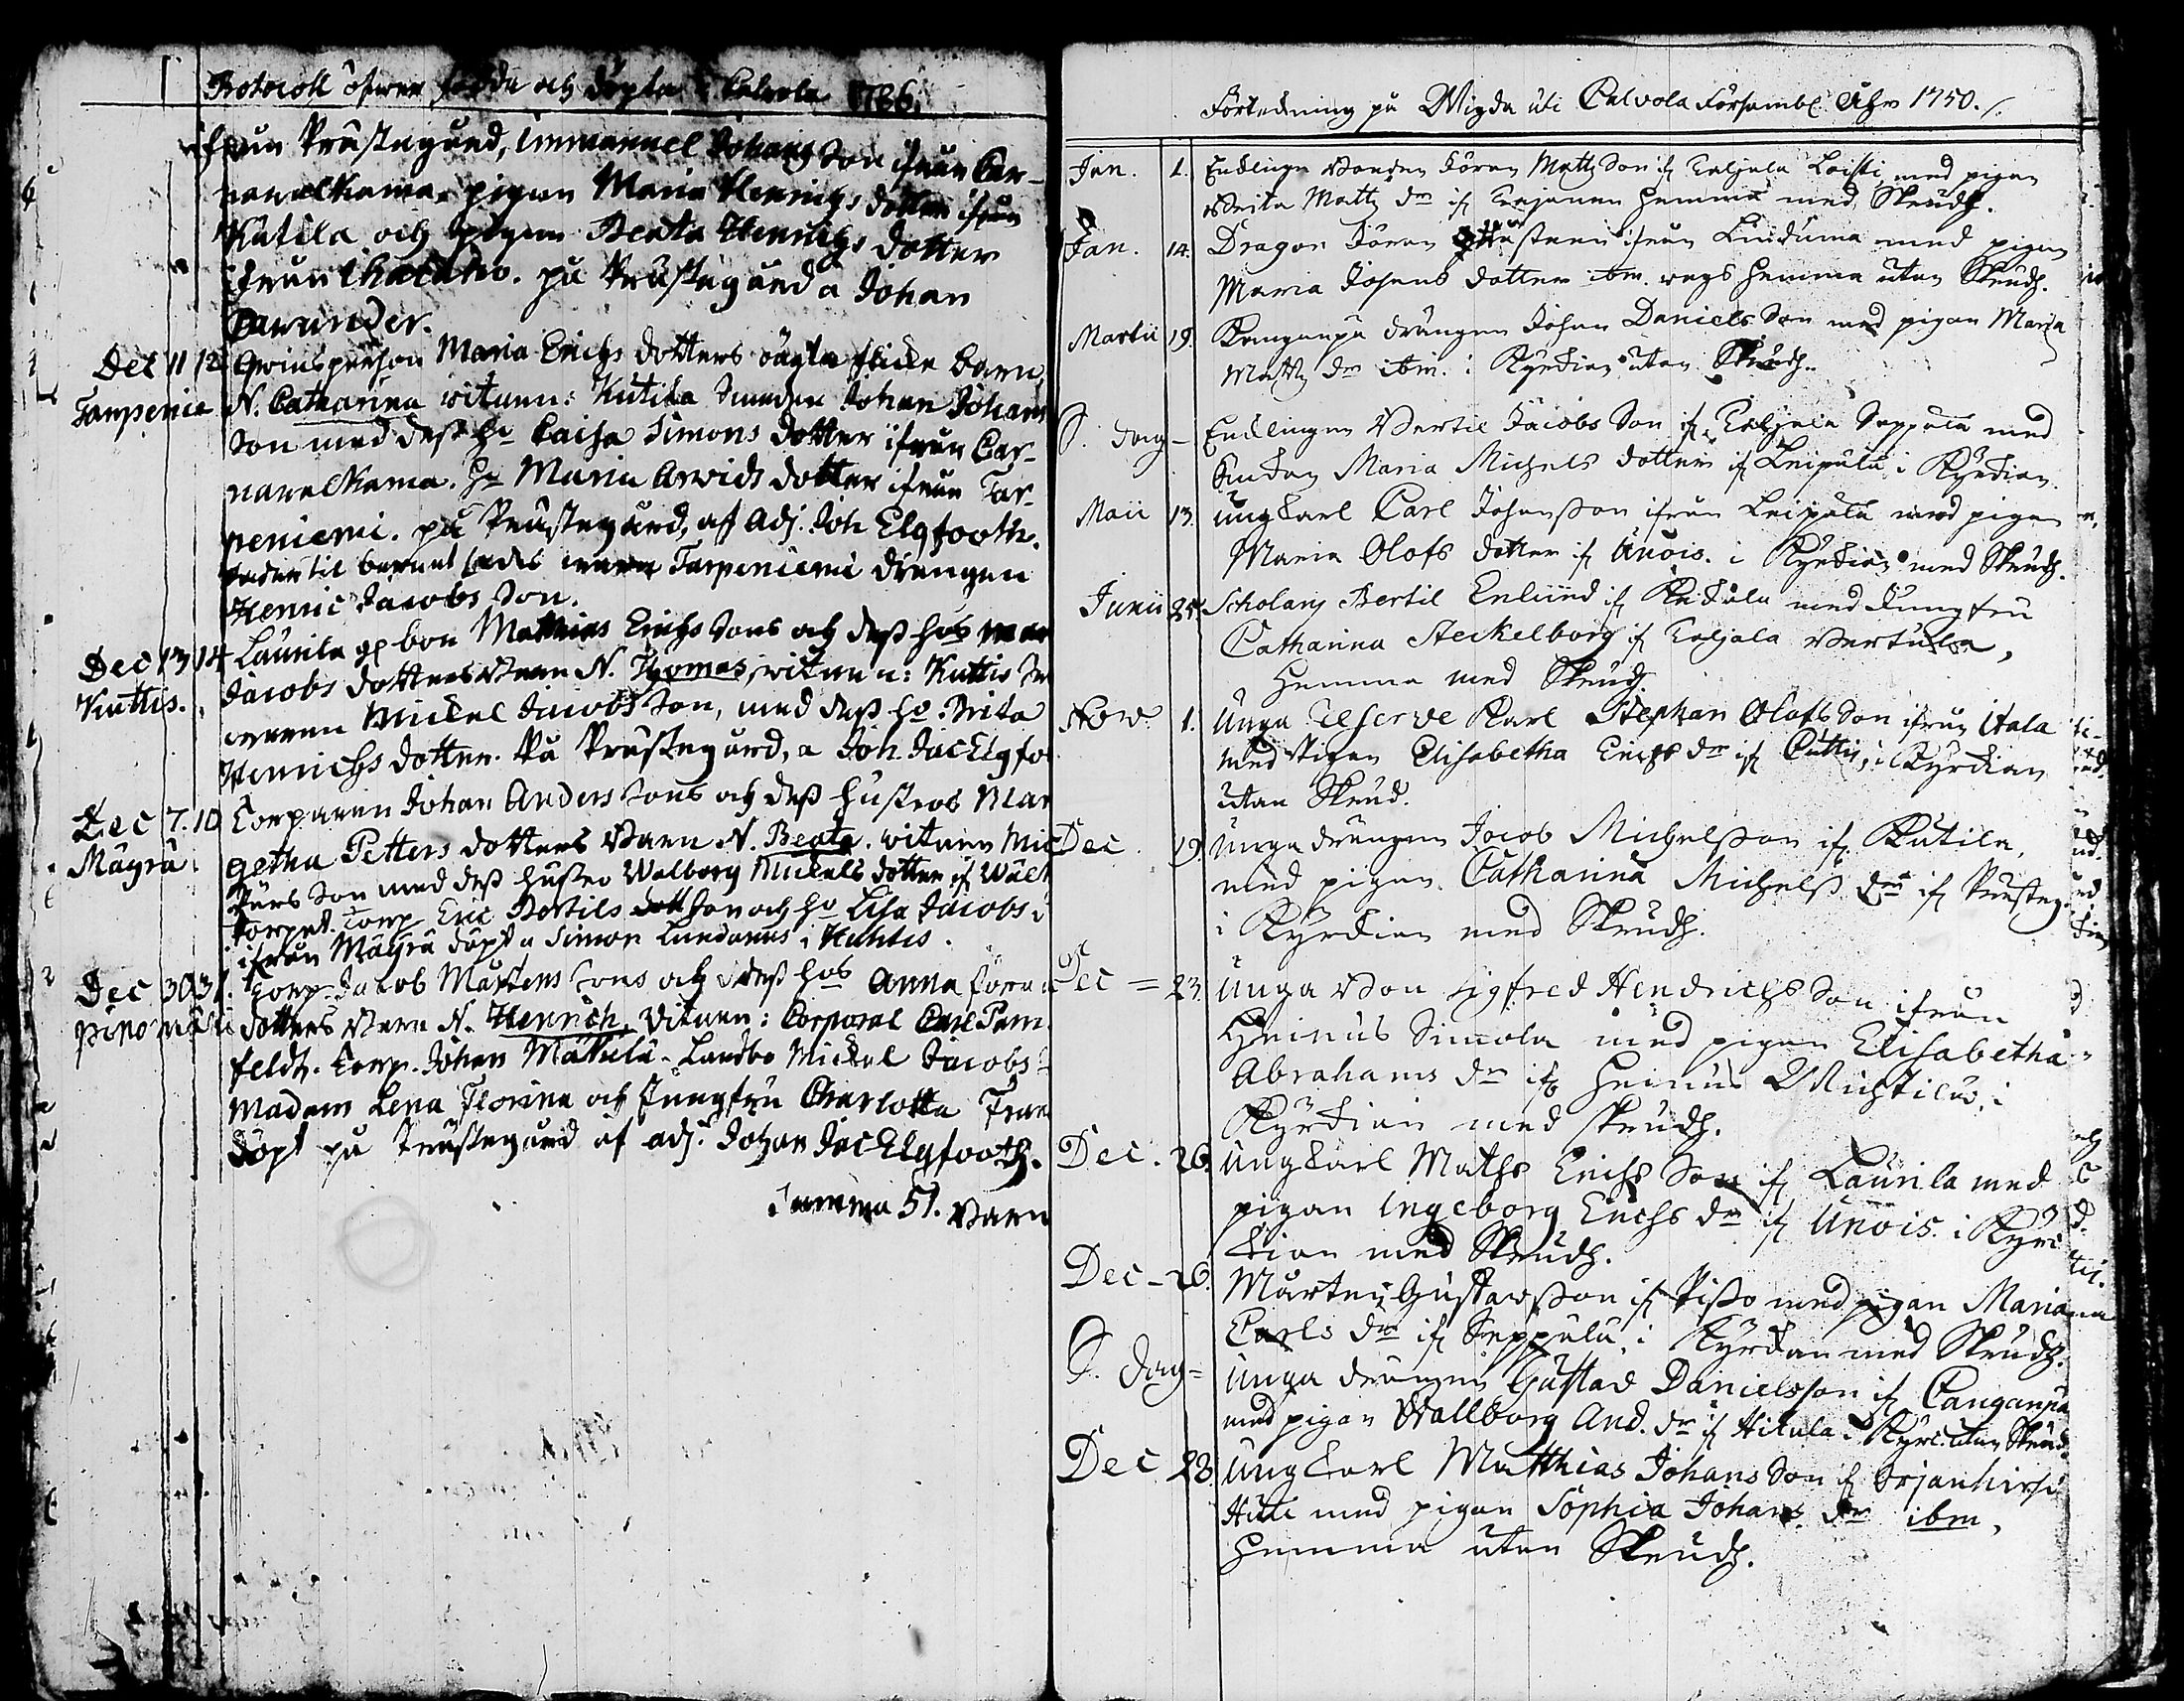 Protocoll öfwer födda och döpta i Calvola 1786.
ifrån Prästegård, Immanuel Johans Son ifrån Car-
nanalkama. pigan Maria Henrichs dotter ifrån
Kutila och pigan Beata Henrichs dotter
ifrån på Prästegård a Johan
Dec 11 12 Qwinsperson Maria Erichs dotters oägta flicke barn,
Tarpenie N. Catharina witnen: Kutila Johan Johans
Son med dess ho Caisa Simons dotter ifrån Car-
nanalkama. ho Maria Arvids dotter ifrån Tar-
peniemi. på Prästegård, af Adj. Joh Elgfooth.
fader til barnet wara Tarpeniemi drengen
Henric Jacobs Son.
Dec 13 14 Laurila bon Mathias Erichs Sons och dess hos Mar
Kuttis. Jacobs dotters barn N. Thomas, witnen: Kuttis
Mickel Jacobs Son, med dess ho. Brita
Henrichs dotter. På Prästegård, a Joh. Jac Elgfo
Dec 7. 10 Torparen Johan Anders Sons och dess hustros Mar
Mäyrä getha Petters dotters Barn N. Beata. witnen Mic
Pärs Son med dess hustro Walborg Mickels dotter if Wäl
torpet. Torp Eric Bertils Son och ho Lisa Jacobs
ifrån Mäyrä döpt a Simon Lundanus i Huhtis.
Dec 30 31. Torp. Jacob Mårtens Sons och dess hos Anna
dotters Barn N. Henrich, Witnen: Corporal Carl Pam
feldt. Torp. Johan Mäkelä. Landbo Mickel Jacobs
Madam Lena Florina och Jungfru Charlotta
Döpt på Prästegård af adj. Johan Jac Elgfooth.
Summa 51. Barn
Förtekning på Wigda uti Calvola Försambl. Åhr 1750.
Jan. 1. Enklingen Bonden Jöran Matts Son if Taljala Loisti, med pigan
Brita Matts dr if hemma med Skrudh.
Jan. 14. Dragon Jöran ifrån Linduma med pigan
Maria Johans dotter ibm. hemma utan Skrudh.
Martii 19. Kanganpä drängen Johan Daniels Son med pigan Maria
Matts dr ibm. i Kyrkian utan Skrudh.
S. dag - Enklingen Bertil Jacobs Son if. Taljala Seppälä med
Enkan Maria Michels dotter if Leipälä i Kyrkian.
Maii 13. Ungkarl Carl Johansson ifrån Leipälä med pigan
Maria Olofs dotter if Unois. i Kyrkian med Skrudh.
Junii 24. Scholaris Bertil Enlund if Retula med Jungfru
Catharina Steckelborg if Taljala Bertula,
hemma med Skrudh
Nov. 1. Unga Reserve Karl Stephan Olofs Son ifrån Itala
med Pigan Elisabetha Erichs dr if Cuttis, i Kyrkian
utan Skrud.
Dec. 19 Unga drängen Jacob Michelsson if. Kutila,
med pigan Catharina Michels dr if Prästeg.
i Kyrkian med Skrudh.
Dec = 23. Unga Bon Sigfred Hendrichs Son ifrån
Heinus Simola med pigan Elisabetha
Abrahams dr if Heinus i
Kyrkian med skrudh.
Dec. 26. Ungkarl Maths Erichs Son if Laurila med
pigan Ingeborg Erichs dr if Unois. i Kyrc
kian med Skrudh.
Dec - 26. Mårten Gustavsson if Pisso med pigan Maria
Carls dr if Seppälä, i Kyrkan med Skrudh.
S. dag = Unga drängen Gustav Danielsson if Canganpä
med pigan Wallborg And. dr if Hitula i Kyrc. utan Skrud.
Dec 28. Ungkarl Matthias Johans Son if Orjanhirsi
Hute med pigan Sophia Johans dr ibm,
hemma utan Skrudh.